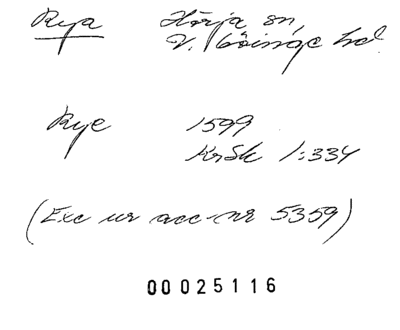 Rya Hörja sn,
V. Göinge hd
Rye 1599
KrSk 1:334
(Exc ur acc-nr 5359)
00025116